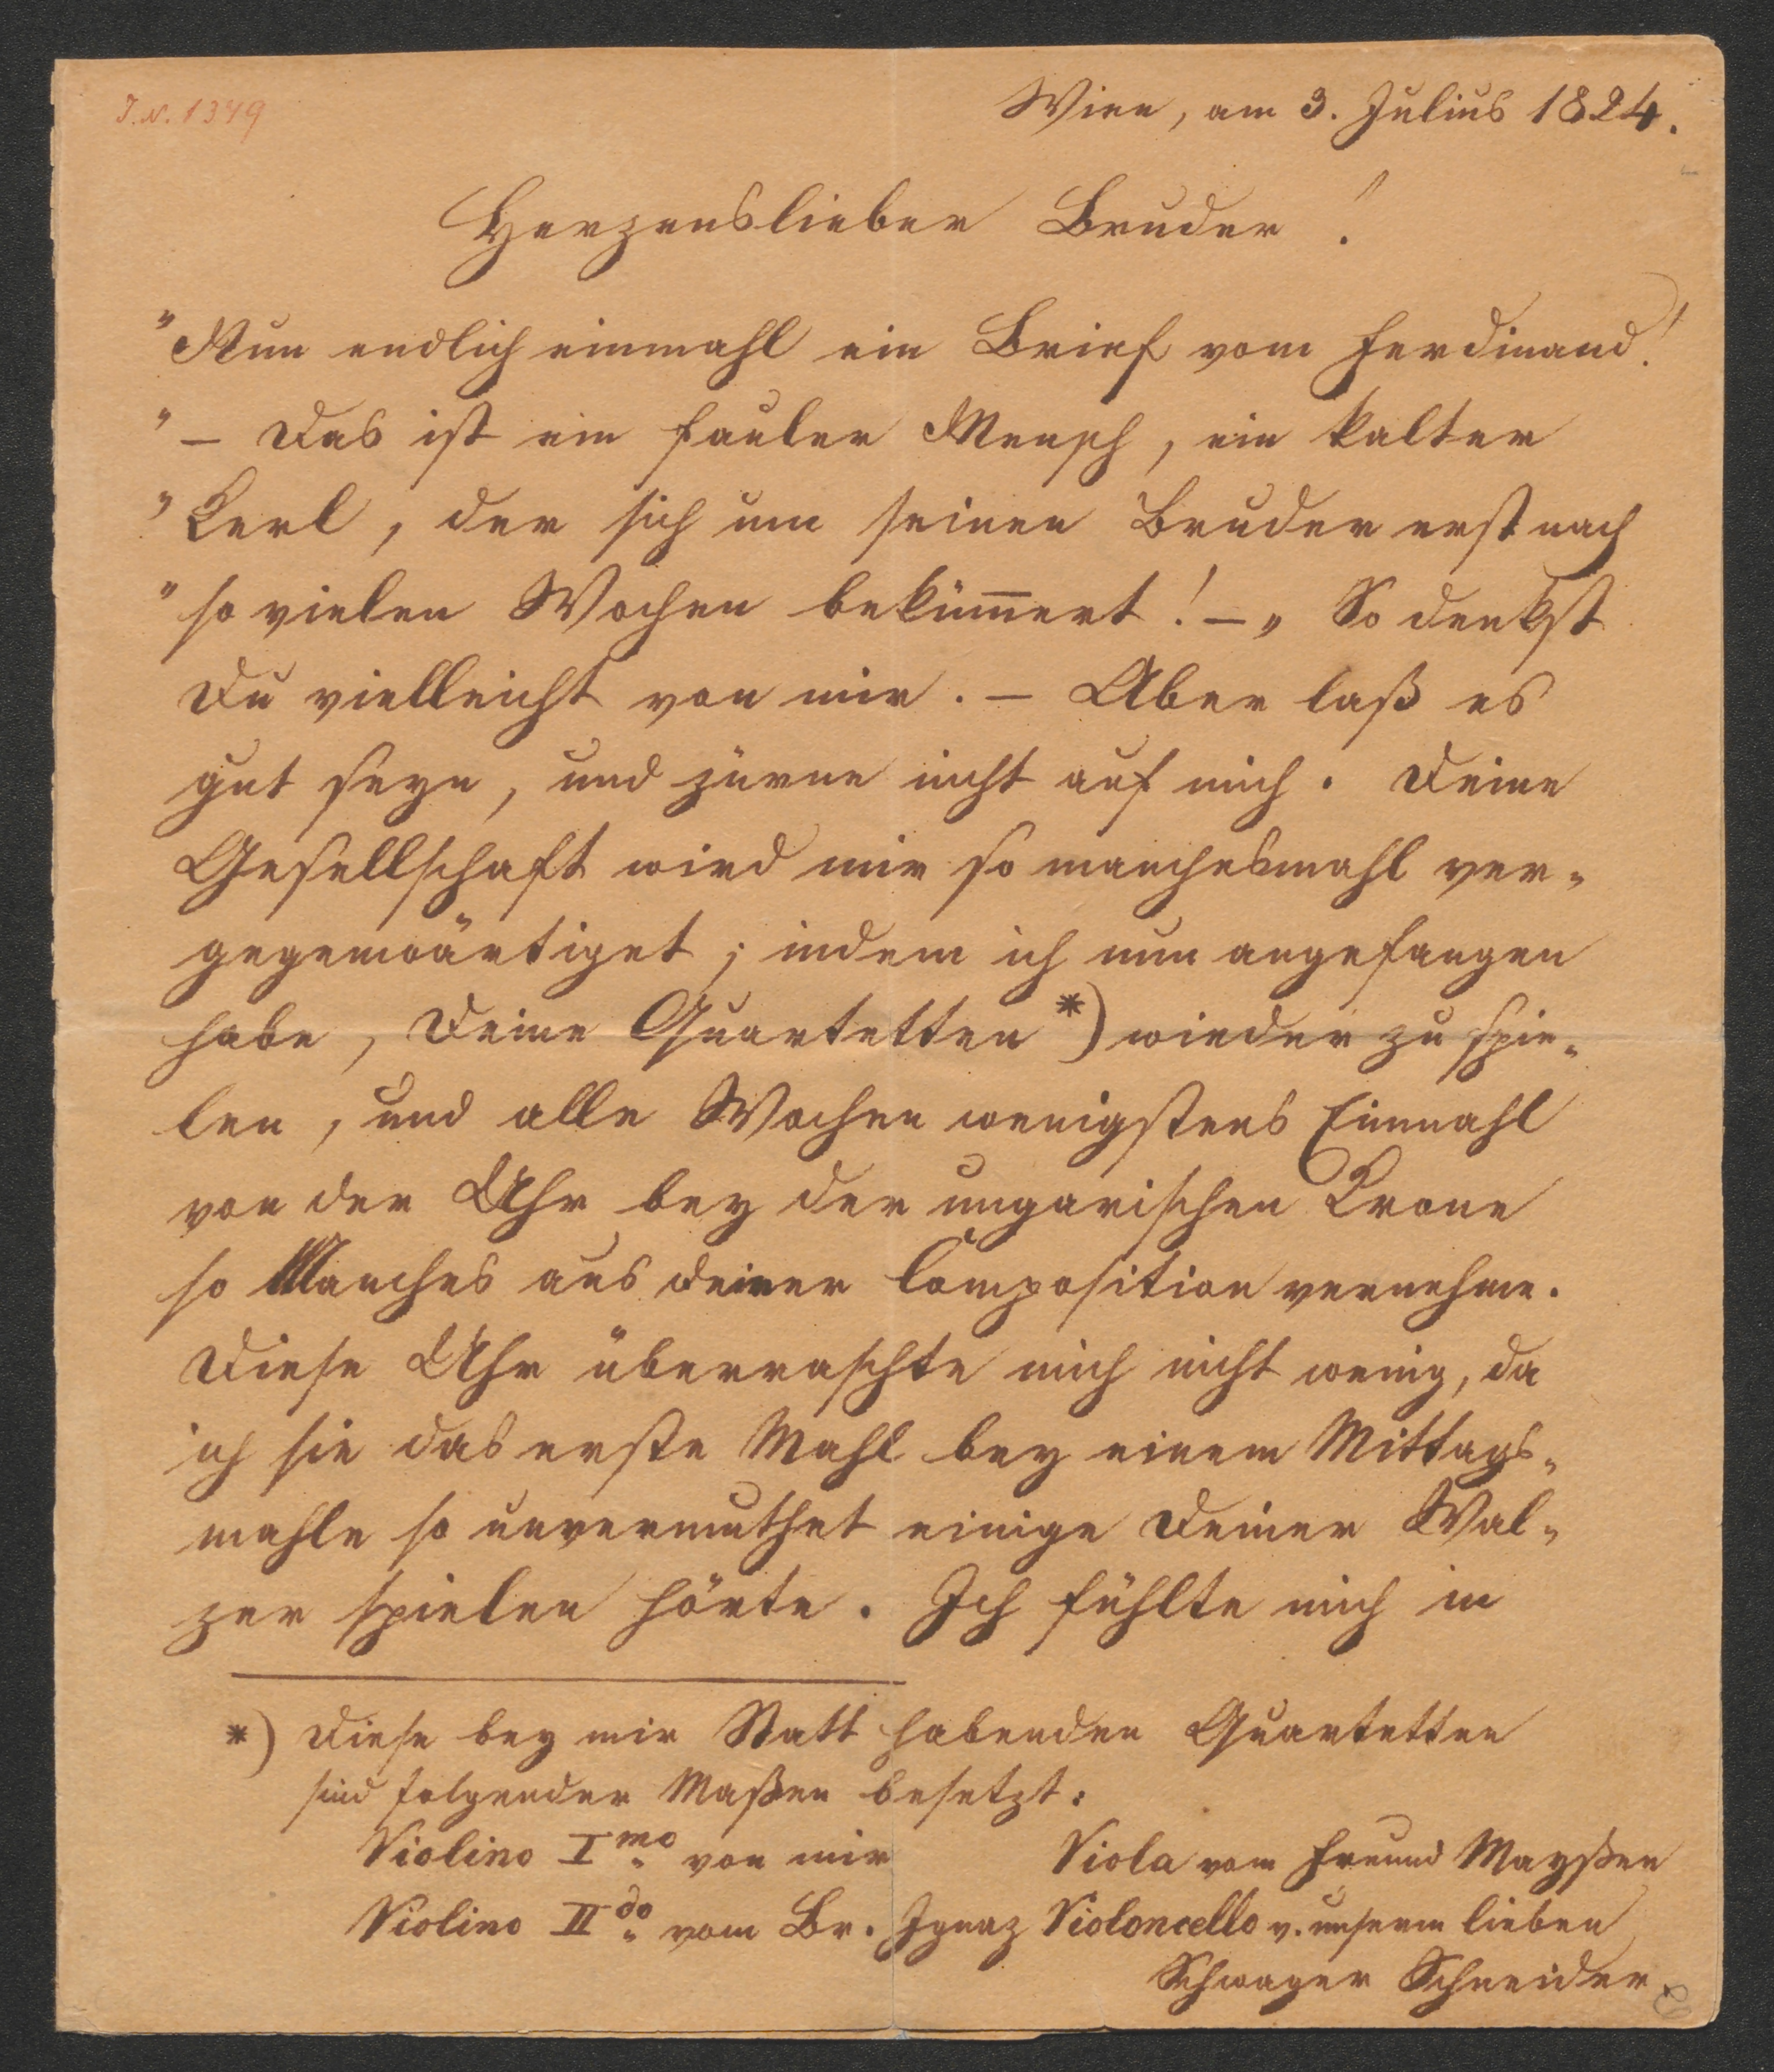 J.N. 1349
Wien, am 3. Julius 1824.
Herzenslieber Bruder!
"Nun endlich einmahl ein Brief vom Ferdinand!
"– Das ist ein fauler Mensch, ein kalter
"Kerl, der sich um seinen Bruder erst nach
"so vielen Wochen bekümm̅ert! –„ So denkst
Du vielleicht von mir. – Aber laß es
gut seyn, und zürne nicht auf mich. Deine
Gesellschaft wird mir so manchesmahl ver-
gegenwärtiget; indem ich nun angefangen
habe, Deine Quartetten *) wieder zu spie-
len, und alle Wochen wenigstens Einmahl
von der Uhr bey der ungarischen Krone
so Manches aus deiner Composition vernehme.
Diese Uhr überraschte mich nicht wenig, da
ich sie das erste Mahl bey einem Mittags-
mahle so unvermuthet einige Deiner Wal-
zer spielen hörte. Ich fühlte mich in
*) Diese bey mir Statt habenden Quartetten
sind folgender Maßen besetzt:
Violino I mo von mir Viola vom Freund Mayßen
Violino II do vom Br. Ignaz Violoncello v. unserm lieben
Schwager Schneider